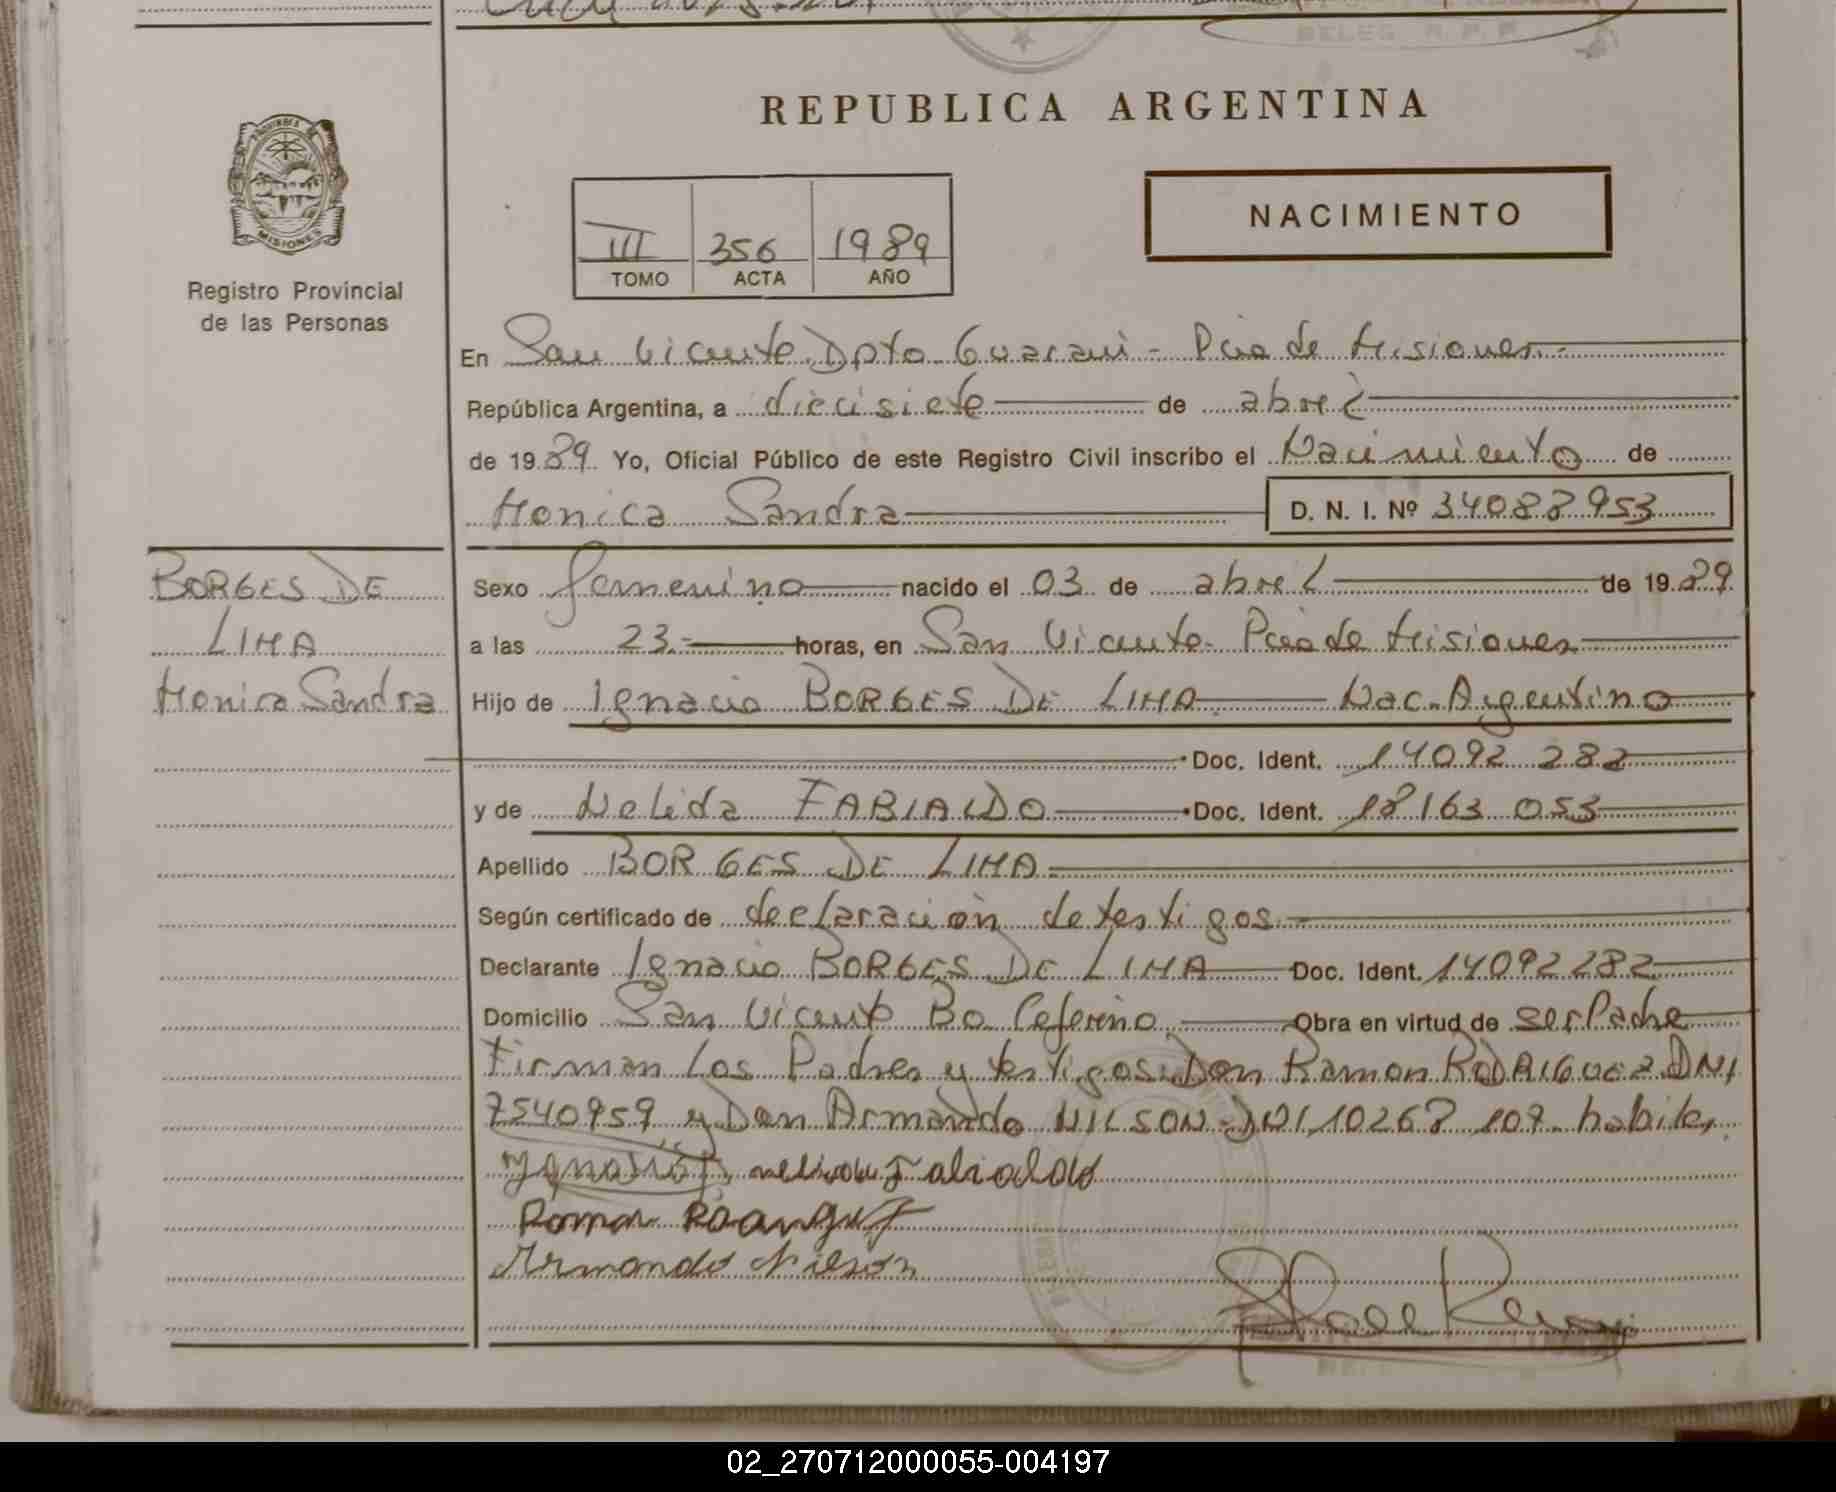 REPUBLICA ARGENTINA
NACIMIENTO
III 356 1989
TOMO ACTA AÑO
MISIONES
Registro Provincial
de las Personas
En San Vicente Dpto Guarani - Pcia de Misiones.-
República Argentina, a diecisiete de abril
de 1989. Yo, Oficial Público de este Registro Civil inscribo el Nacimiento de
Monica Sandra D. N. I. Nº 34088953
BORGES DE
LIMA
Monica Sandra
Sexo femenino nacido el 03 de abril de 1989.
a las 23.- horas, en San Vicente - Pcia de Misiones
Hijo de Ignacio BORGES DE LIMA Nac. Argentino
Doc. Ident. 14092 282
y de Nelida FABIALDO Doc. Ident. 18163 053
Apellido BORGES DE LIMA.
Según certificado de declaración de testigos.-
Declarante Ignacio BORGES DE LIMA Doc. Ident. 14092282
Domicilio San Vicente Bo Ceferino Obra en virtud de ser Padre
Firman Los Padres y testigos Don Ramon RODRIGUEZ DNI
7540959 y Don Armando NILSON - DNI 10268 107 - habiles,
Armando Nilson
02_270712000055-004197